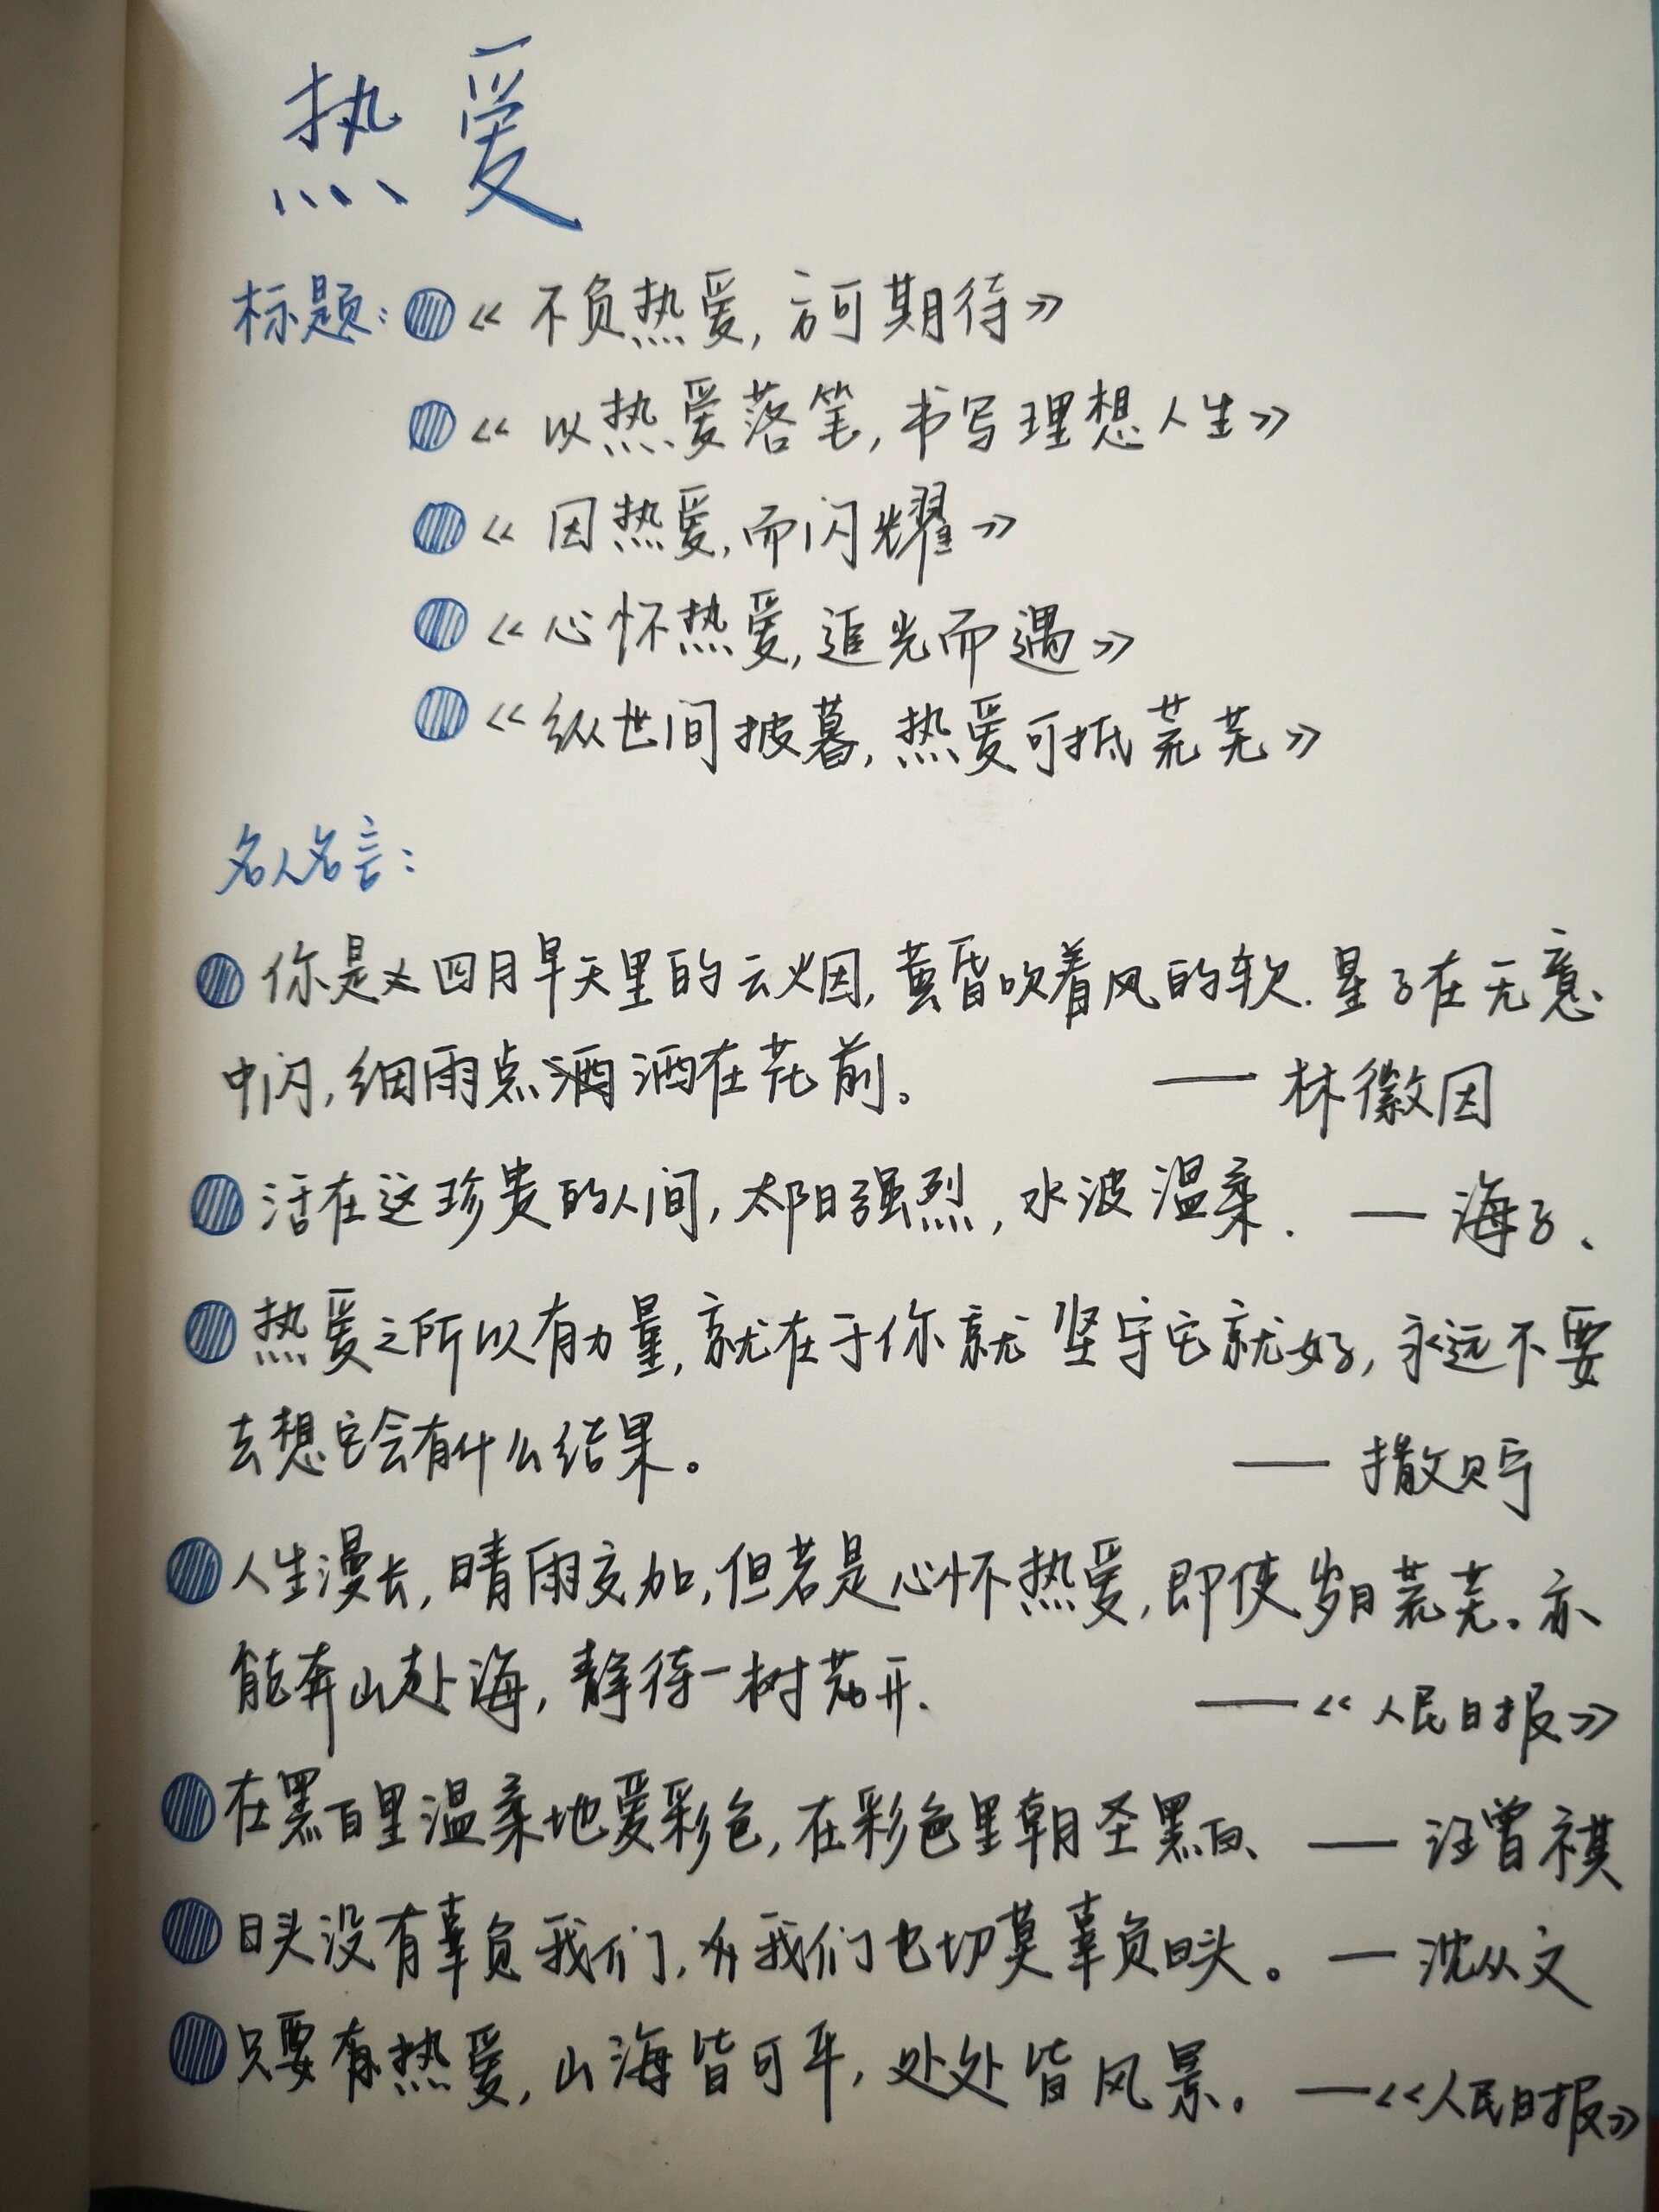 热爱
标题: 《不负热爱,方可期待》
《以热爱落笔,书写理想人生》
《因热爱,而闪耀》
《心怀热爱,追光而遇》
《纵世间披暮,热爱可抵荒芜》
名人名言:
你是四月早天里的云烟,黄昏吹着风的软.星子在无意
中闪,细雨点洒在花前。 ——林徽因
活在这珍贵的人间,太阳强烈,水波温柔. ——海子、
热爱之所以有力量,就在于你就坚守它就好,永远不要
去想它会有什么结果。 ——撒贝宁
人生漫长,晴雨交加,但若是心怀热爱,即使岁月荒芜。亦
能奔山赴海,静待一树花开. ——《人民日报》
在黑白里温柔地爱彩色,在彩色里朝圣黑白、 ——汪曾祺
日头没有辜负我们,我们也切莫辜负日头。 —沈从文
只要有热爱,山海皆可平,处处皆风景。 ——《人民日报》